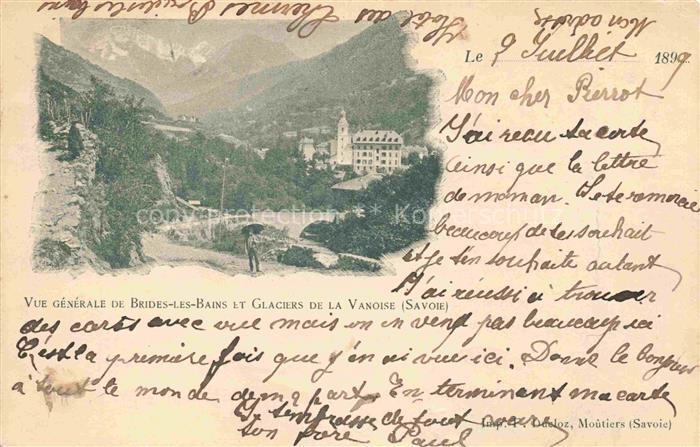 Mon adresse
Hotel des Thermes Brides les bains
Le 9 Juillet 1899
Mon cher Pierrot
J'ai reçu ta carte
ainsi que la lettre
de maman. Je te remercie
beaucoup de tes souhait
et je t'en souhaite autant
J'ai réussi à trouver
VUE GÉNÉRALE DE BRIDES-LES-BAINS ET GLACIERS DE LA VANOISE (SAVOIE)
des cartes avec vue mais on en vend pas beaucoup ici
C'est la première fois que j'en ai vue ici. Donne le bonjour
à tout le monde de ma part. En terminant ma carte
je t'embrasse de tout coeur
Imp. Ducloz, Moûtiers (Savoie)
ton père Paul